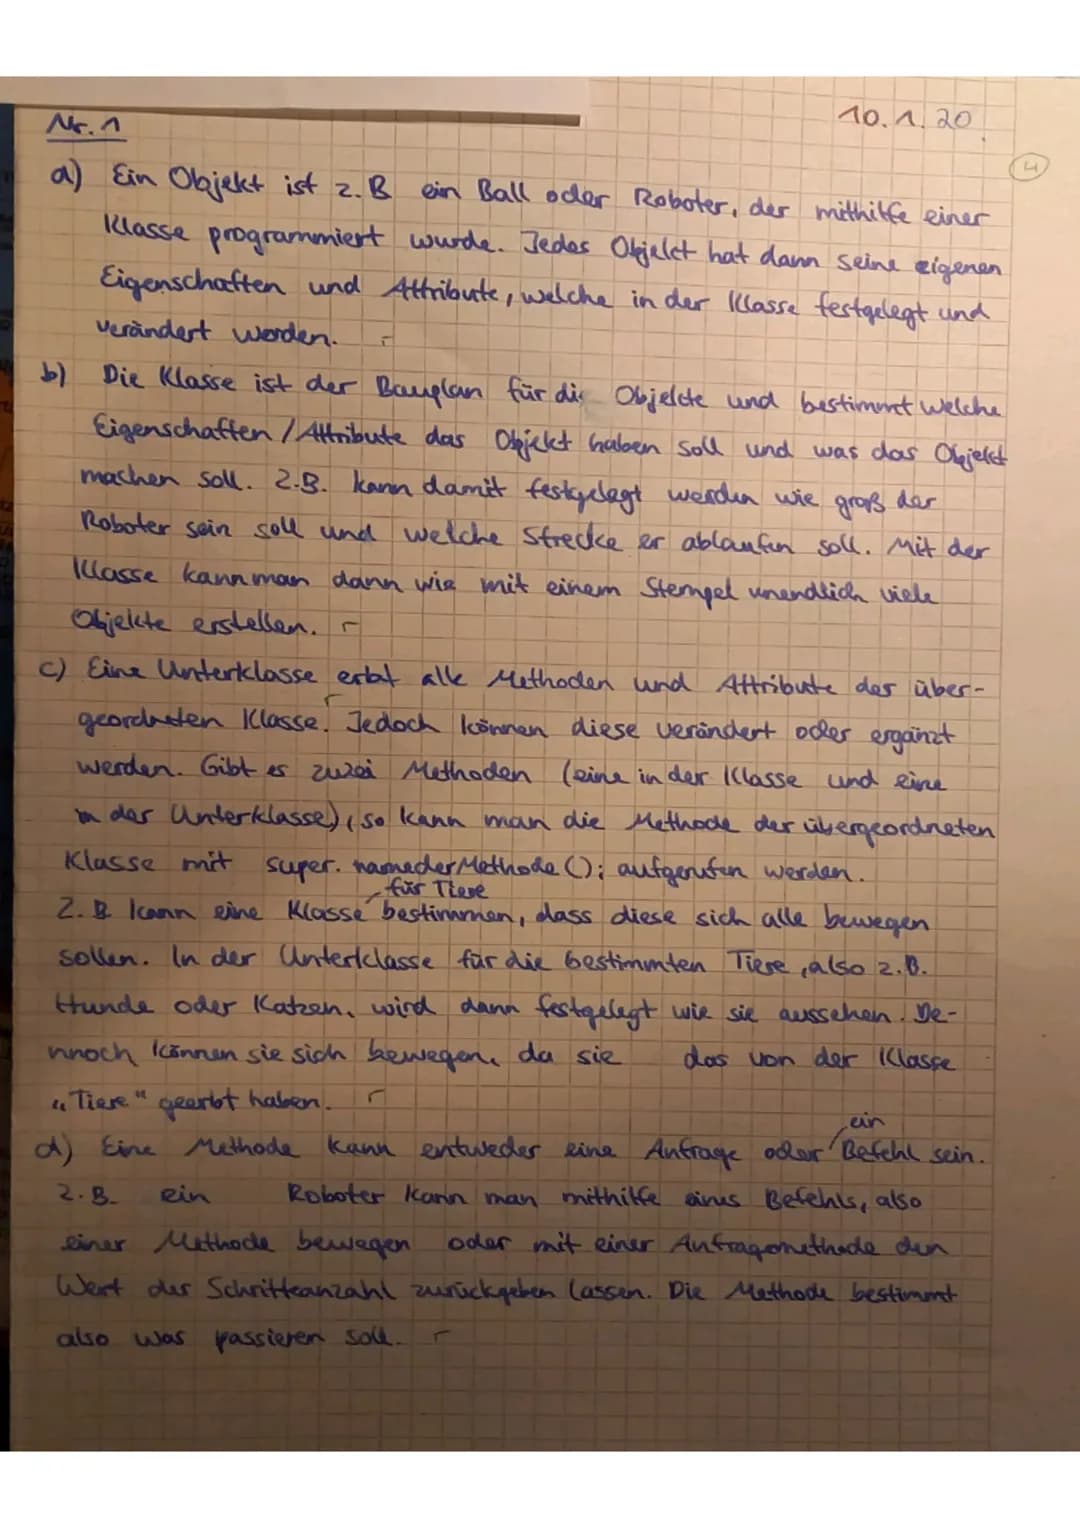 10.1.20
Nr. 1
4
a) Ein Objekt ist z.B ein Ball oder Roboter, der mithilfe einer
Klasse programmiert wurde. Jedes Objekt hat dann seine eigenen
Eigenschaften und Attribute, welche in der Klasse festgelegt und
verändert werden. r
b) Die Klasse ist der Bauplan für die Objekte und bestimmt welche
Eigenschaften / Attribute das Objekt haben soll und was das Objekt
machen soll. Z.B. kann damit festgelegt werden wie groß der
Roboter sein soll und welche Strecke er ablaufen soll. Mit der
Klasse kann man dann wie mit einem Stempel unendlich viele
Objekte erstellen. r
c) Eine Unterklasse erbt alle Methoden und Attribute der über-
geordneten Klasse. r Jedoch können diese verändert oder ergänzt
werden. Gibt es zwei Methoden (eine in der Klasse und eine
in der Unterklasse), so kann man die Methode der übergeordneten
Klasse mit super.namederMethode(); aufgerufen werden.
für Tiere
Z.B. kann eine Klasse bestimmen, dass diese sich alle bewegen
sollen. In der Unterklasse für die bestimmten Tiere, also z.B.
Hunde oder Katzen, wird dann festgelegt wie sie aussehen. De-
nnoch können sie sich bewegen, da sie das von der Klasse
„Tiere" geerbt haben. r
ein
d) Eine Methode kann entweder eine Anfrage oder Befehl sein.
Z.B. ein Roboter kann man mithilfe eines Befehls, also
einer Methode bewegen oder mit einer Anfragemethode den
Wert der Schritteanzahl zurückgeben lassen. Die Methode bestimmt
also was passieren soll. r